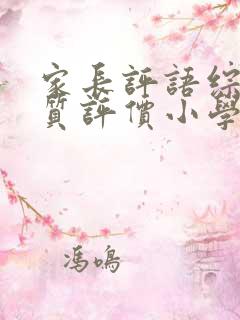 家長評語綜
質評價小學
馮鳴